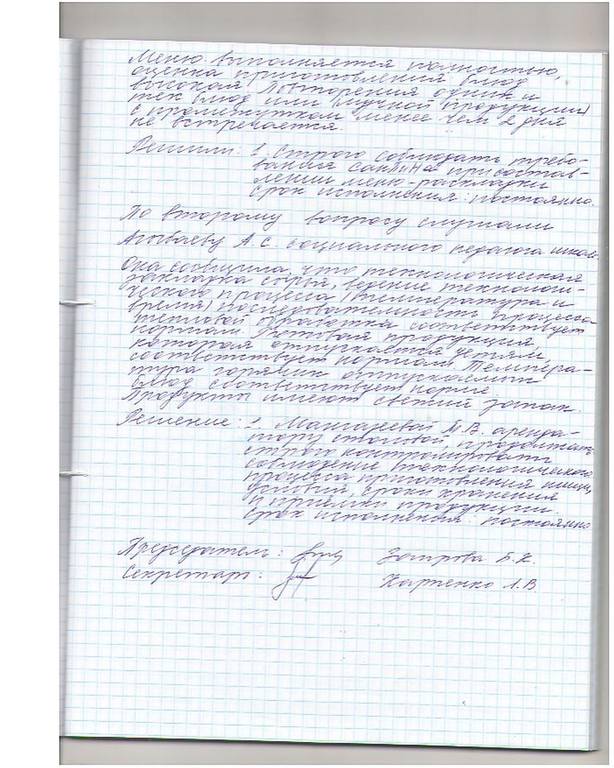 Меню выполняется полностью,
оценка приготовления блюд
высокая. Повторения одних и
тех блюд или (мучной продукции)
с промежутком менее чем 2 дня
не встречается.
Решили: 1. Строго соблюдать требо-
вания СанПиНа при состав-
лении меню-раскладки
срок исполнения: постоянно.
По второму вопросу слушали
А.С. социального педагога школы
Она сообщила, что технологическая
закладка сырья, ведение технологи-
ческого процесса (температура и
время) последовательность процесса
тепловой обработки соответствует
нормам. Готовая продукция,
которая отпускается детям
соответствует нормам. Темпера-
тура горячих отпускаемых
блюд соответствует норме.
Продукты имеют свежий запах.
Решение: 1. М.В. аренда-
тору столовой продолжать
строго контролировать
соблюдение технологического
процесса приготовления пищи,
условий, сроки хранения
и приёмки продукции.
срок исполнения: постоянно
Председатель: Заирова Б.К.
Секретарь: Харченко Л.В.